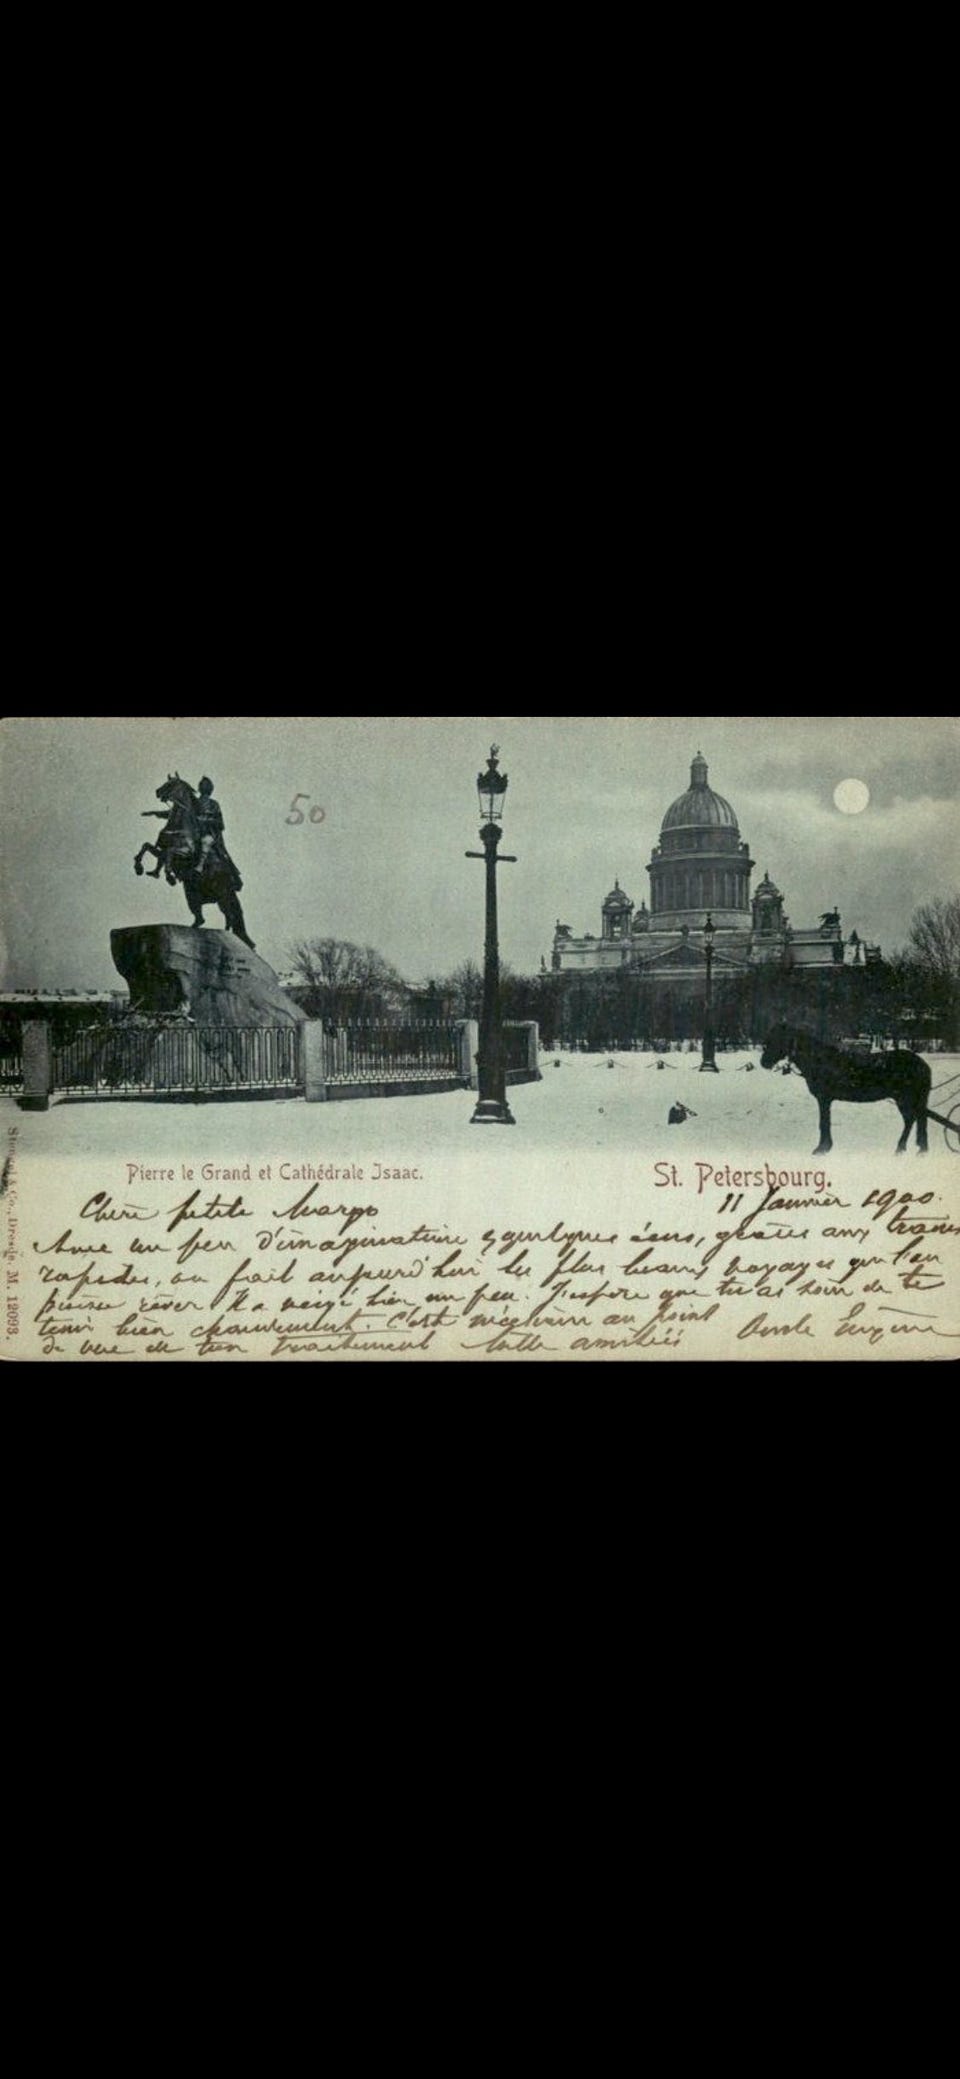 50
Pierre le Grand et Cathédrale Isaac.
St. Petersbourg.
Stengel & Co., Dresde. M. 12093.
11 Janvier 1900.
Chère petite Margo
Avec un peu d'imagination & quelques écus, grâces aux trains
rapides, on fait aujourd'hui les plus beaux voyages que l'on
puisse rêver. Il a neigé bien un peu. J'espère que tu as soin de te
tenir bien chaudement. C'est nécessaire au point
de vue de ton traitement Mille amitiés Oncle Eugène